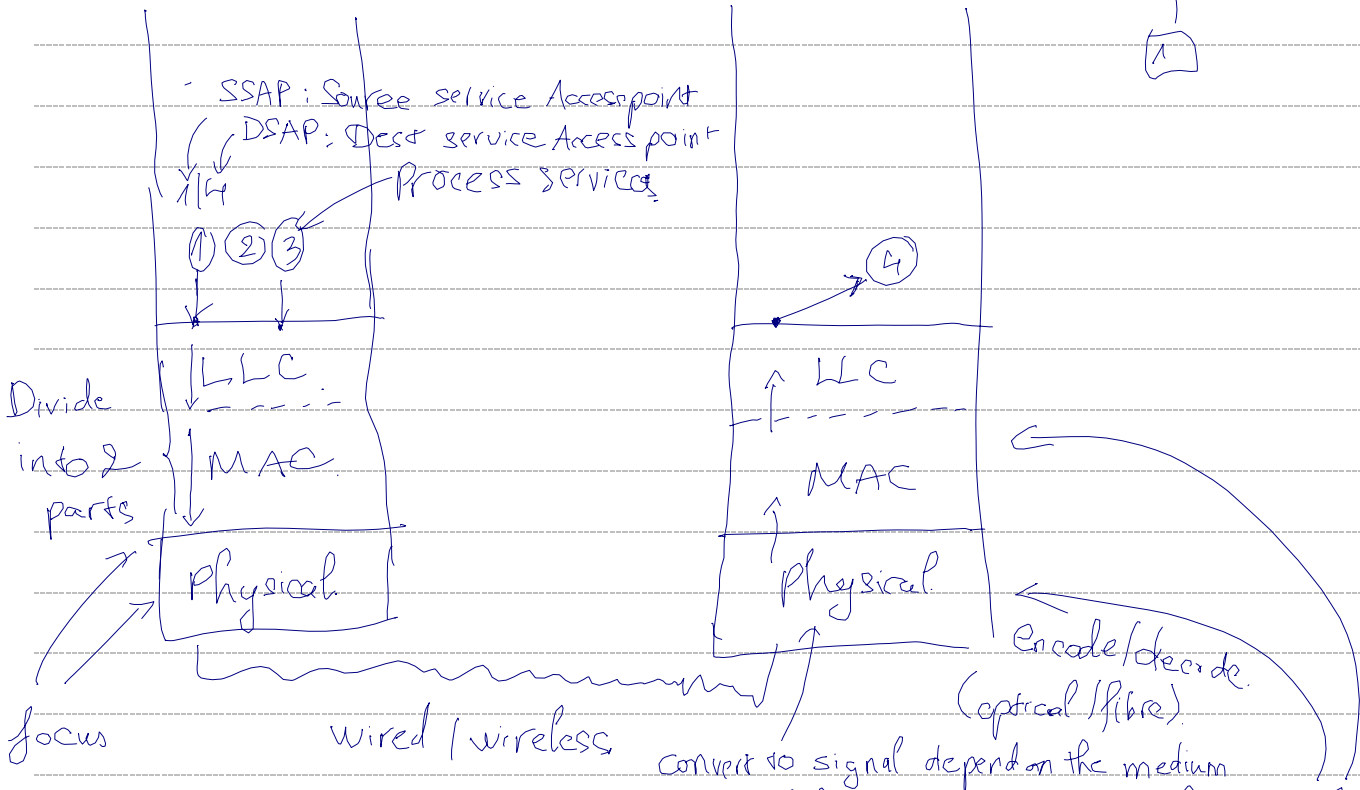 1
SSAP: Source service Access point
DSAP: Dest service Access point
1/4
Process services
1 2 3
4
LLC
LLC
Divide
into 2
parts
MAC
MAC
Physical
Physical
encode/decode
(optical/fibre)
focus
wired/wireless
convert to signal depend on the medium